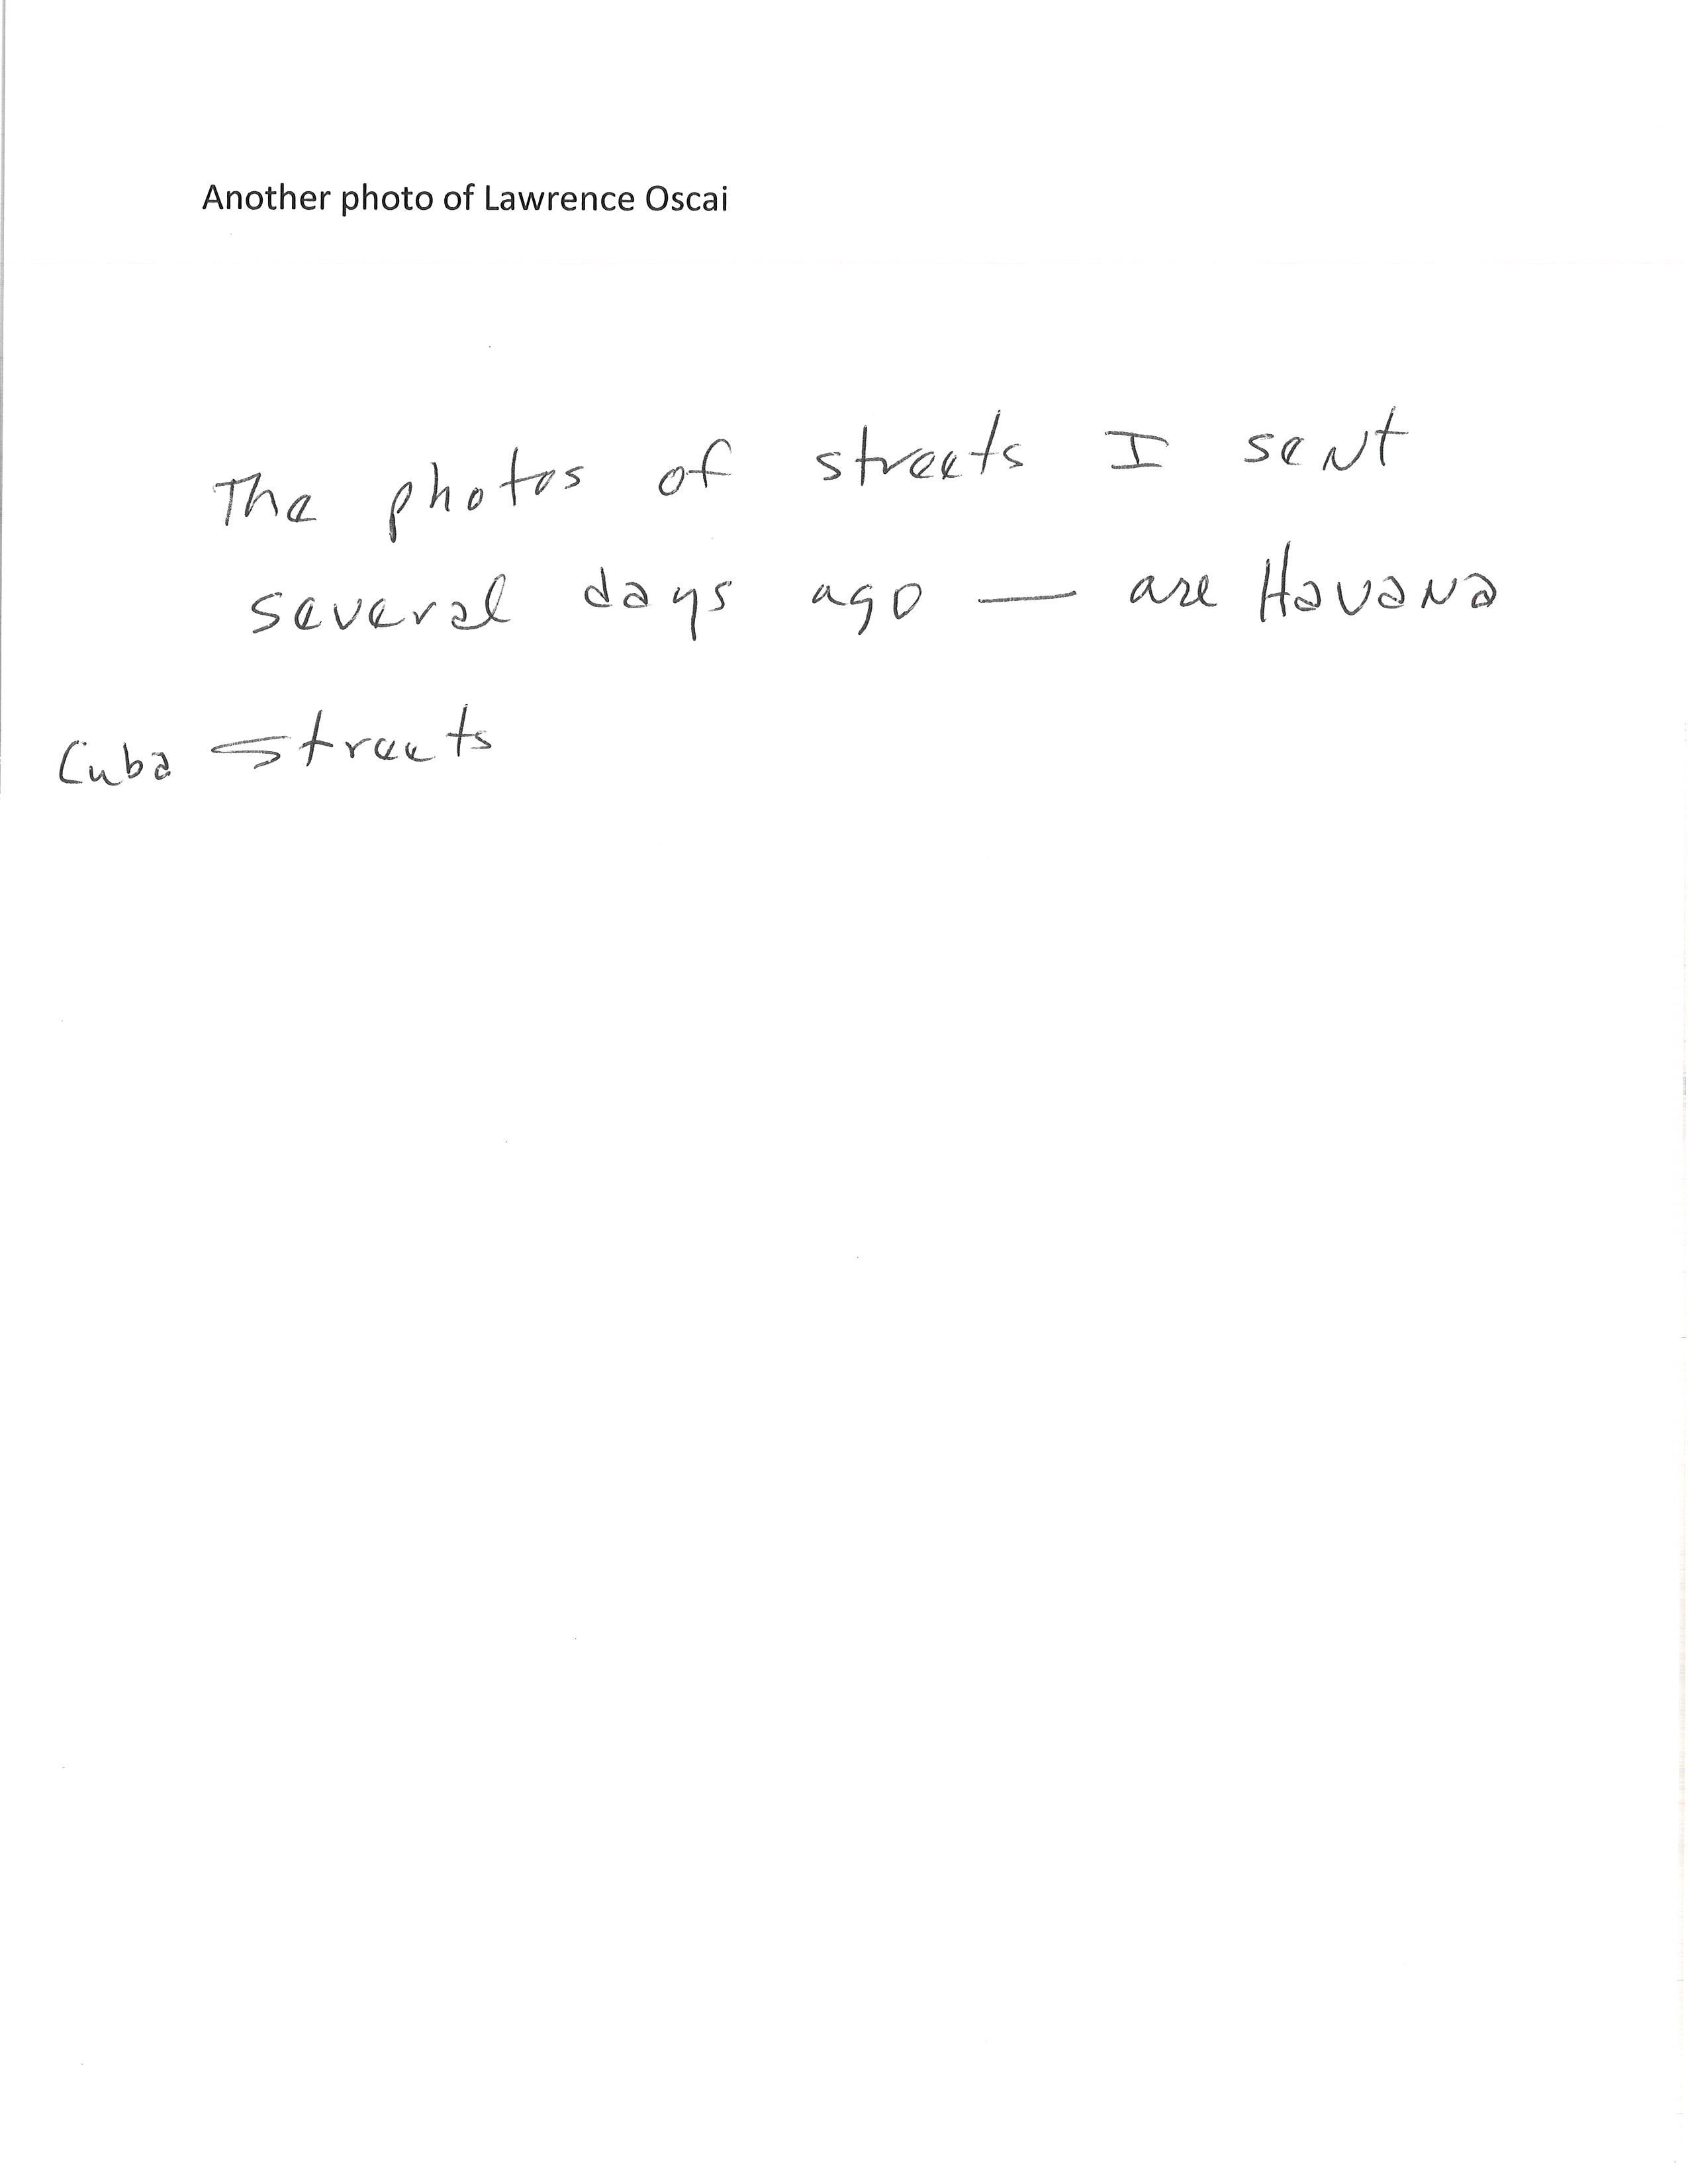 Another photo of Lawrence Oscai
The photos of streets I sent
several days ago — are Havana
Cuba Streets